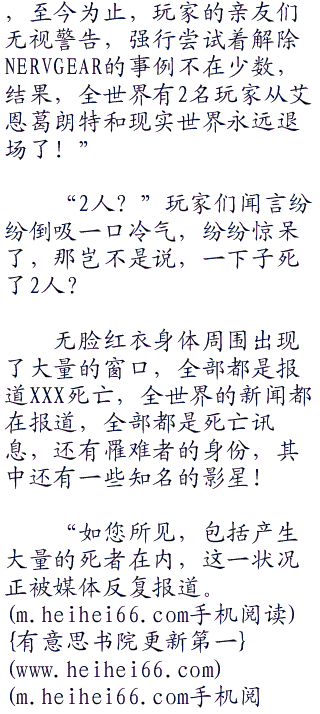 ，至今为止，玩家的亲友们
无视警告，强行尝试着解除
NERVGEAR的事例不在少数，
结果，全世界有2名玩家从艾
恩葛朗特和现实世界永远退
场了！”
“2人？”玩家们闻言纷
纷倒吸一口冷气，纷纷惊呆
了，那岂不是说，一下子死
了2人？
无脸红衣身体周围出现
了大量的窗口，全部都是报
道XXX死亡，全世界的新闻都
在报道，全部都是死亡讯
息，还有罹难者的身份，其
中还有一些知名的影星！
“如您所见，包括产生
大量的死者在内，这一状况
正被媒体反复报道。
(m.heihei66.com手机阅读)
{有意思书院更新第一}
(www.heihei66.com)
(m.heihei66.com手机阅